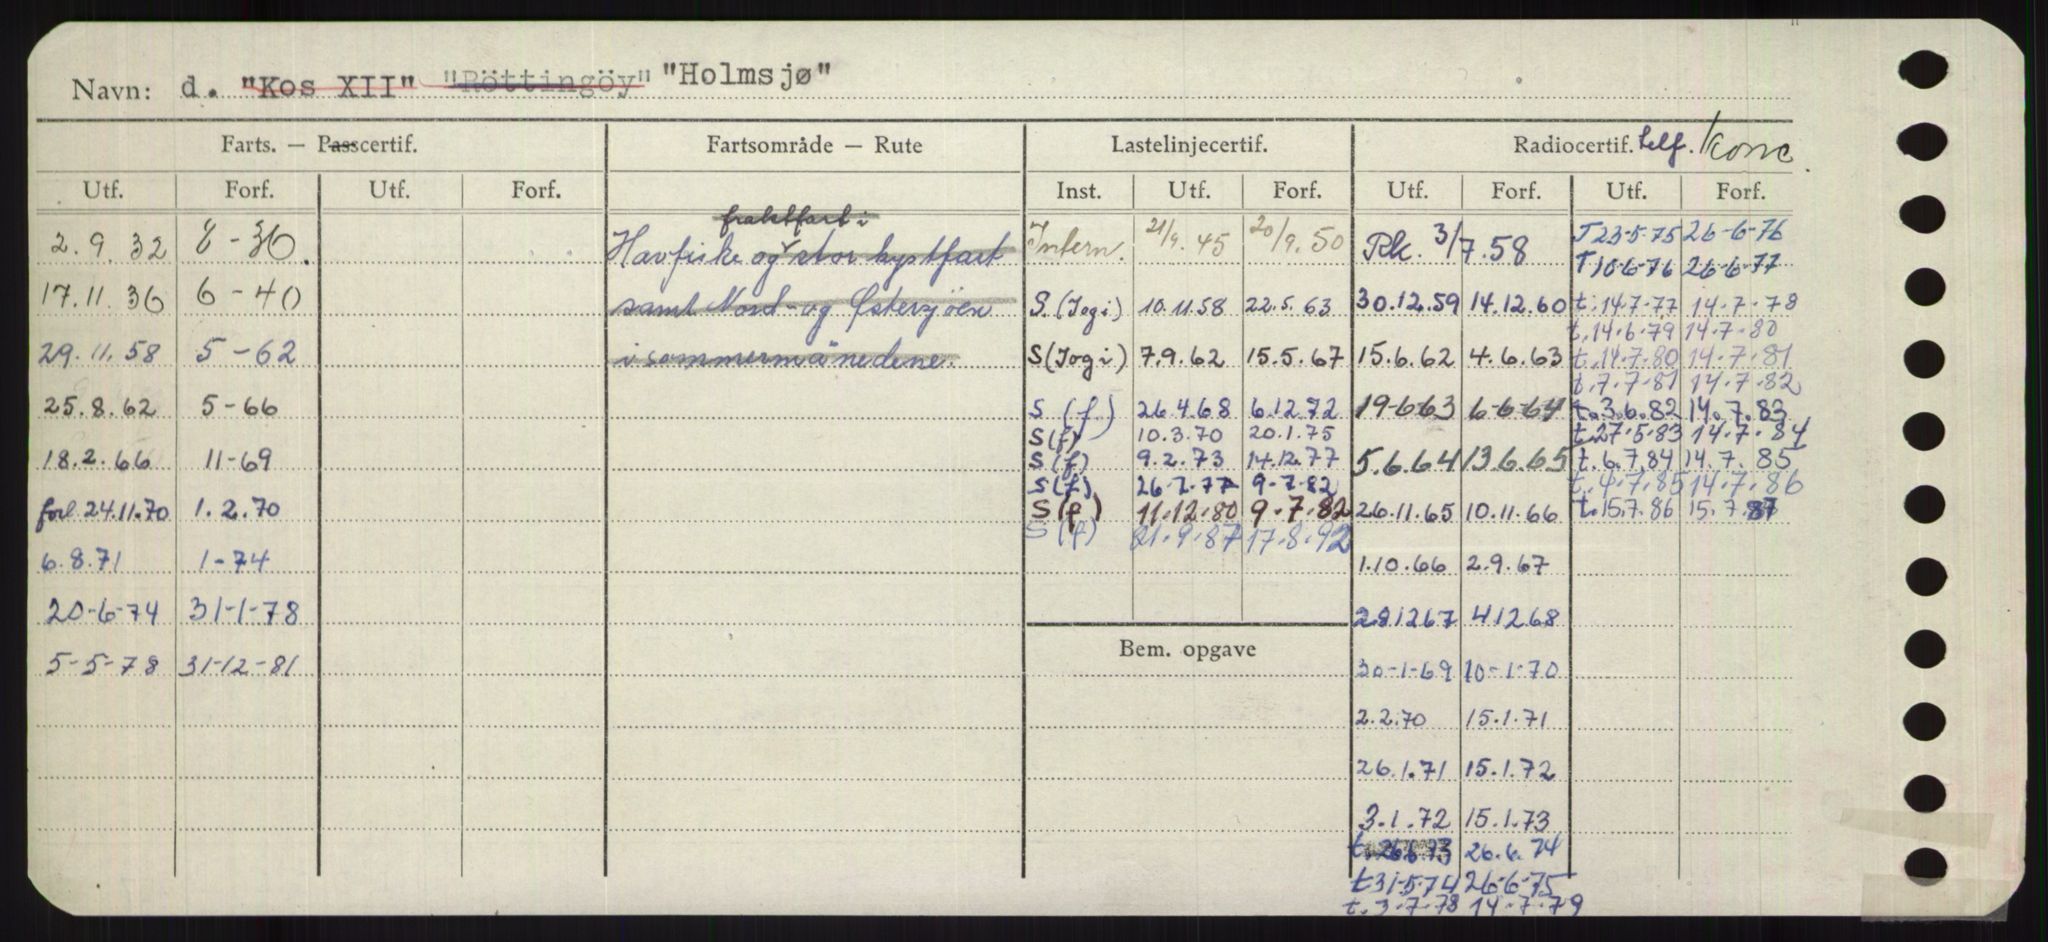 Navn: d. "Kos XII" "Röttingöy" "Holmsjø"
Farts. — Passcertif. Fartsområde — Rute Lastelinjecertif. Radiocertif. Telf. Konc.
Utf. Forf. Utf. Forf. Inst. Utf. Forf. Utf. Forf. Utf. Forf.
2.9.32 8-36.
17.11.36 6-40
29.11.58 5-62
25.8.62 5-66
18.2.66 11-69
forl 24.11.70 1.2.70
6.8.71 1-74
20-6-74 31-1-78
5-5-78 31-12-81
fraktfart i
Havfiske og stor kystfart
samt Nord- og Østersjöen
i sommermånedene.
Intern. 21/9.45 20/9.50
S.(Jogi) 10.11.58 22.5.63
S(Jogi) 7.9.62 15.5.67
S (f.) 26.4.68 6.12.72
S(f) 10.3.70 20.1.75
S(f) 9.2.73 14.12.77
S(f) 26.7.77 9.7.82
S(f) 11.12.80 9.7.82
S(f) 21.9.87 17.8.92
Bem. opgave
Rk. 3/7.58
30.12.59 14.12.60
15.6.62 4.6.63
19-6-63 6-6-64
5.6.64 13.6.65
26.11.65 10.11.66
1.10.66 2.9.67
29.12.67 4.12.68
30-1-69 10-1-70
2.2.70 15.1.71
26.1.71 15.1.72
3.1.72 15.1.73
t. 26.6.73 26.6.74
t 31-5-74 26-6-75
t. 3.7.78 14.7.79
T 23-5-75 26-6-76
T 10-6-76 26-6-77
t. 14.7.77 14.7.78
t. 14.6.79 14.7.80
t. 14.7.80 14.7.81
t. 7.7.81 14.7.82
t. 3.6.82 14.7.83
t. 27.5.83 14.7.84
t. 6.7.84 14.7.85
t. 4.7.85 14.7.86
t. 15.7.86 15.7.87